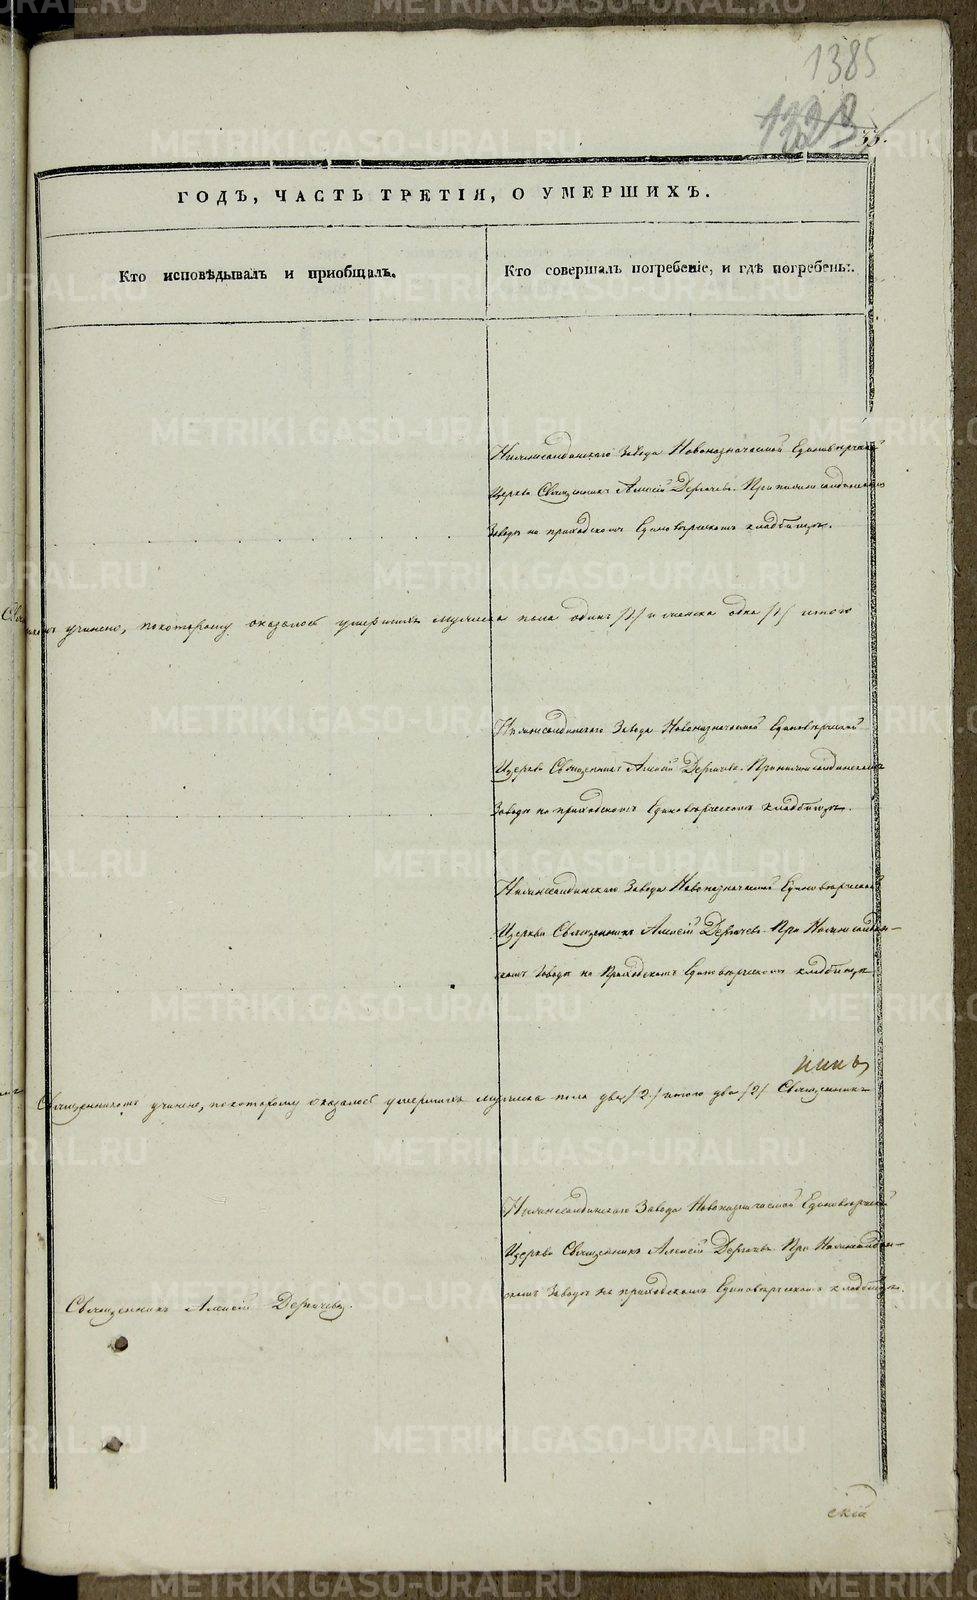 1385
1223
33.
ГОДЪ, ЧАСТЬ ТРЕТІЯ, О УМЕРШИХЪ.
Кто исповѣдывалъ и пріобщалъ.
Кто совершалъ погребеніе, и гдѣ погребены.
Нижнесалдинскаго Завода Новоназначаемой Единовѣрческой
Церкви Священникъ Алексій Дерягинъ. При нижнесалдинскомъ
Заводѣ на приходскомъ Единовѣрческомъ кладбищѣ.
учинено, по которому оказалось умершихъ мужеска пола одинъ /1/ и женска одна /1/ итого
Нижнесалдинскаго Завода Новоназначаемой Единовѣрческой
Церкви Священникъ Алексій Дерягинъ. При нижнесалдинскомъ
Заводѣ на приходскомъ Единовѣрческомъ кладбищѣ.
Нижнесалдинскаго Завода Новоназначаемой Единовѣрческой
Церкви Священникъ Алексій Дерягинъ. При Нижнесалдин-
скомъ Заводѣ на Приходскомъ Единовѣрческомъ кладбищѣ
Священникомъ учинено, по которому оказалось умершихъ мужеска пола два /2/ итого два /2/ Священникъ
Нижнесалдинскаго Завода Новоназначаемой Единовѣрческой
Церкви Священникъ Алексій Дерягинъ. При Нижнесалдин-
скомъ Заводѣ на приходскомъ Единовѣрческомъ кладбищѣ.
Священникъ Алексій
скій
METRIKI.GASO-URAL.RU